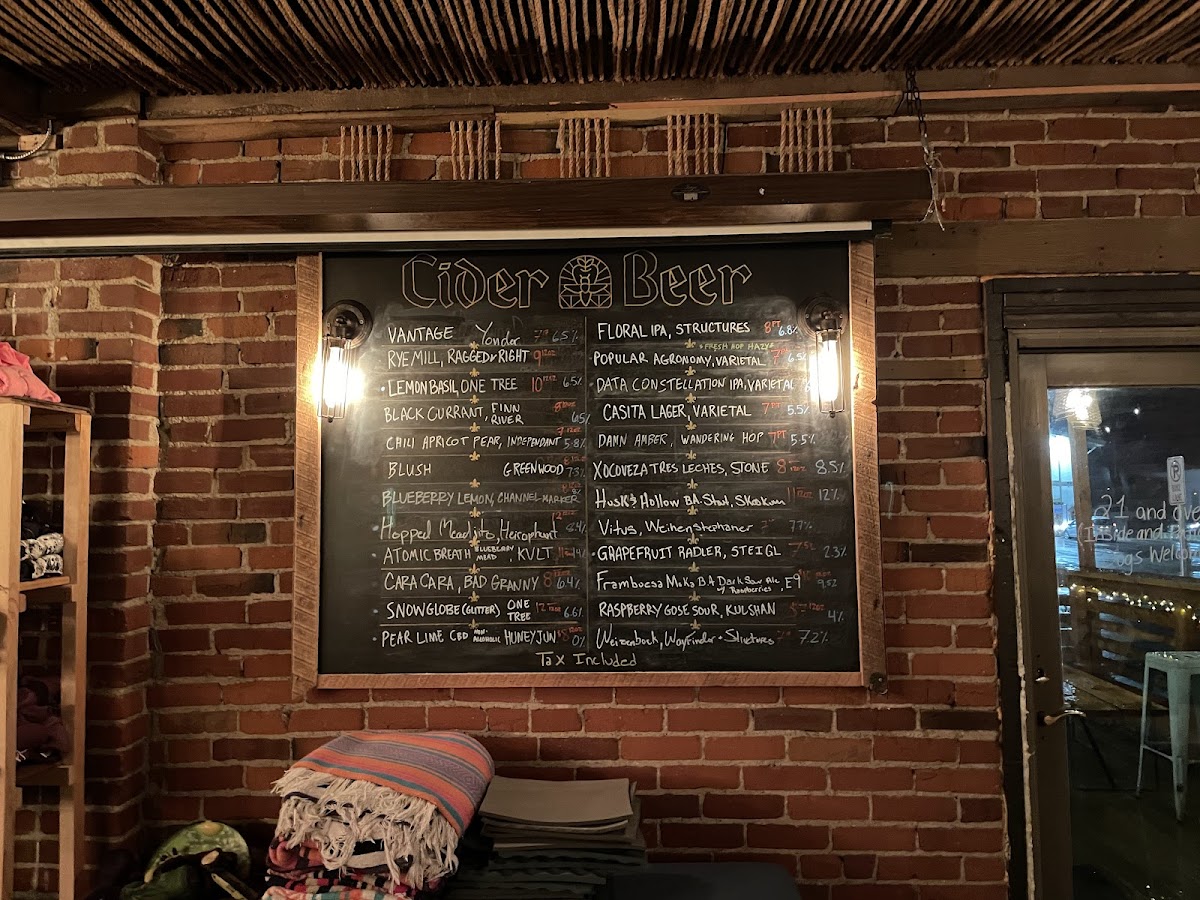 Cider Beer
VANTAGE Yonder 6.5%
RYE MILL, RAGGED & RIGHT 9 12oz
• LEMON BASIL, ONE TREE 10 12oz 6.5%
BLACK CURRANT, FINN RIVER 6.5%
CHILI APRICOT PEAR, INDEPENDANT 5.8%
BLUSH GREENWOOD 7.3%
BLUEBERRY LEMON, CHANNEL MARKER
Hopped Mead
• ATOMIC BREATH BLUEBERRY MEAD, KVLT
CARA CARA, BAD GRANNY 8 6.4%
• SNOWGLOBE (GLITTER) ONE TREE 12 12oz 6.6%
• PEAR LIME CBD NON-ALCOHOLIC HUNEYJUN 0%
FLORAL IPA, STRUCTURES 8PT 6.8%
• FRESH HOP HAZY
POPULAR AGRONOMY, VARIETAL
DATA CONSTELLATION IPA, VARIETAL
CASITA LAGER, VARIETAL 7PT 5.5%
DAMN AMBER, WANDERING HOP 7PT 5.5%
XOCOVEZA TRES LECHES, STONE 8 8.5%
Husk & Hollow B.A. Stout, Skookum 12%
Vitus, Weihenstephaner 7.7%
• GRAPEFRUIT RADLER, STEIGL 2.3%
Framboesa Moka BA Dark Sour Ale w/ Raspberries, E9 9.5%
RASPBERRY GOSE SOUR, KULSHAN 4%
Weizenbock, Wayfinder + Structures 7.2%
Tax Included
21 and over
(Inside and
Dogs Welcome